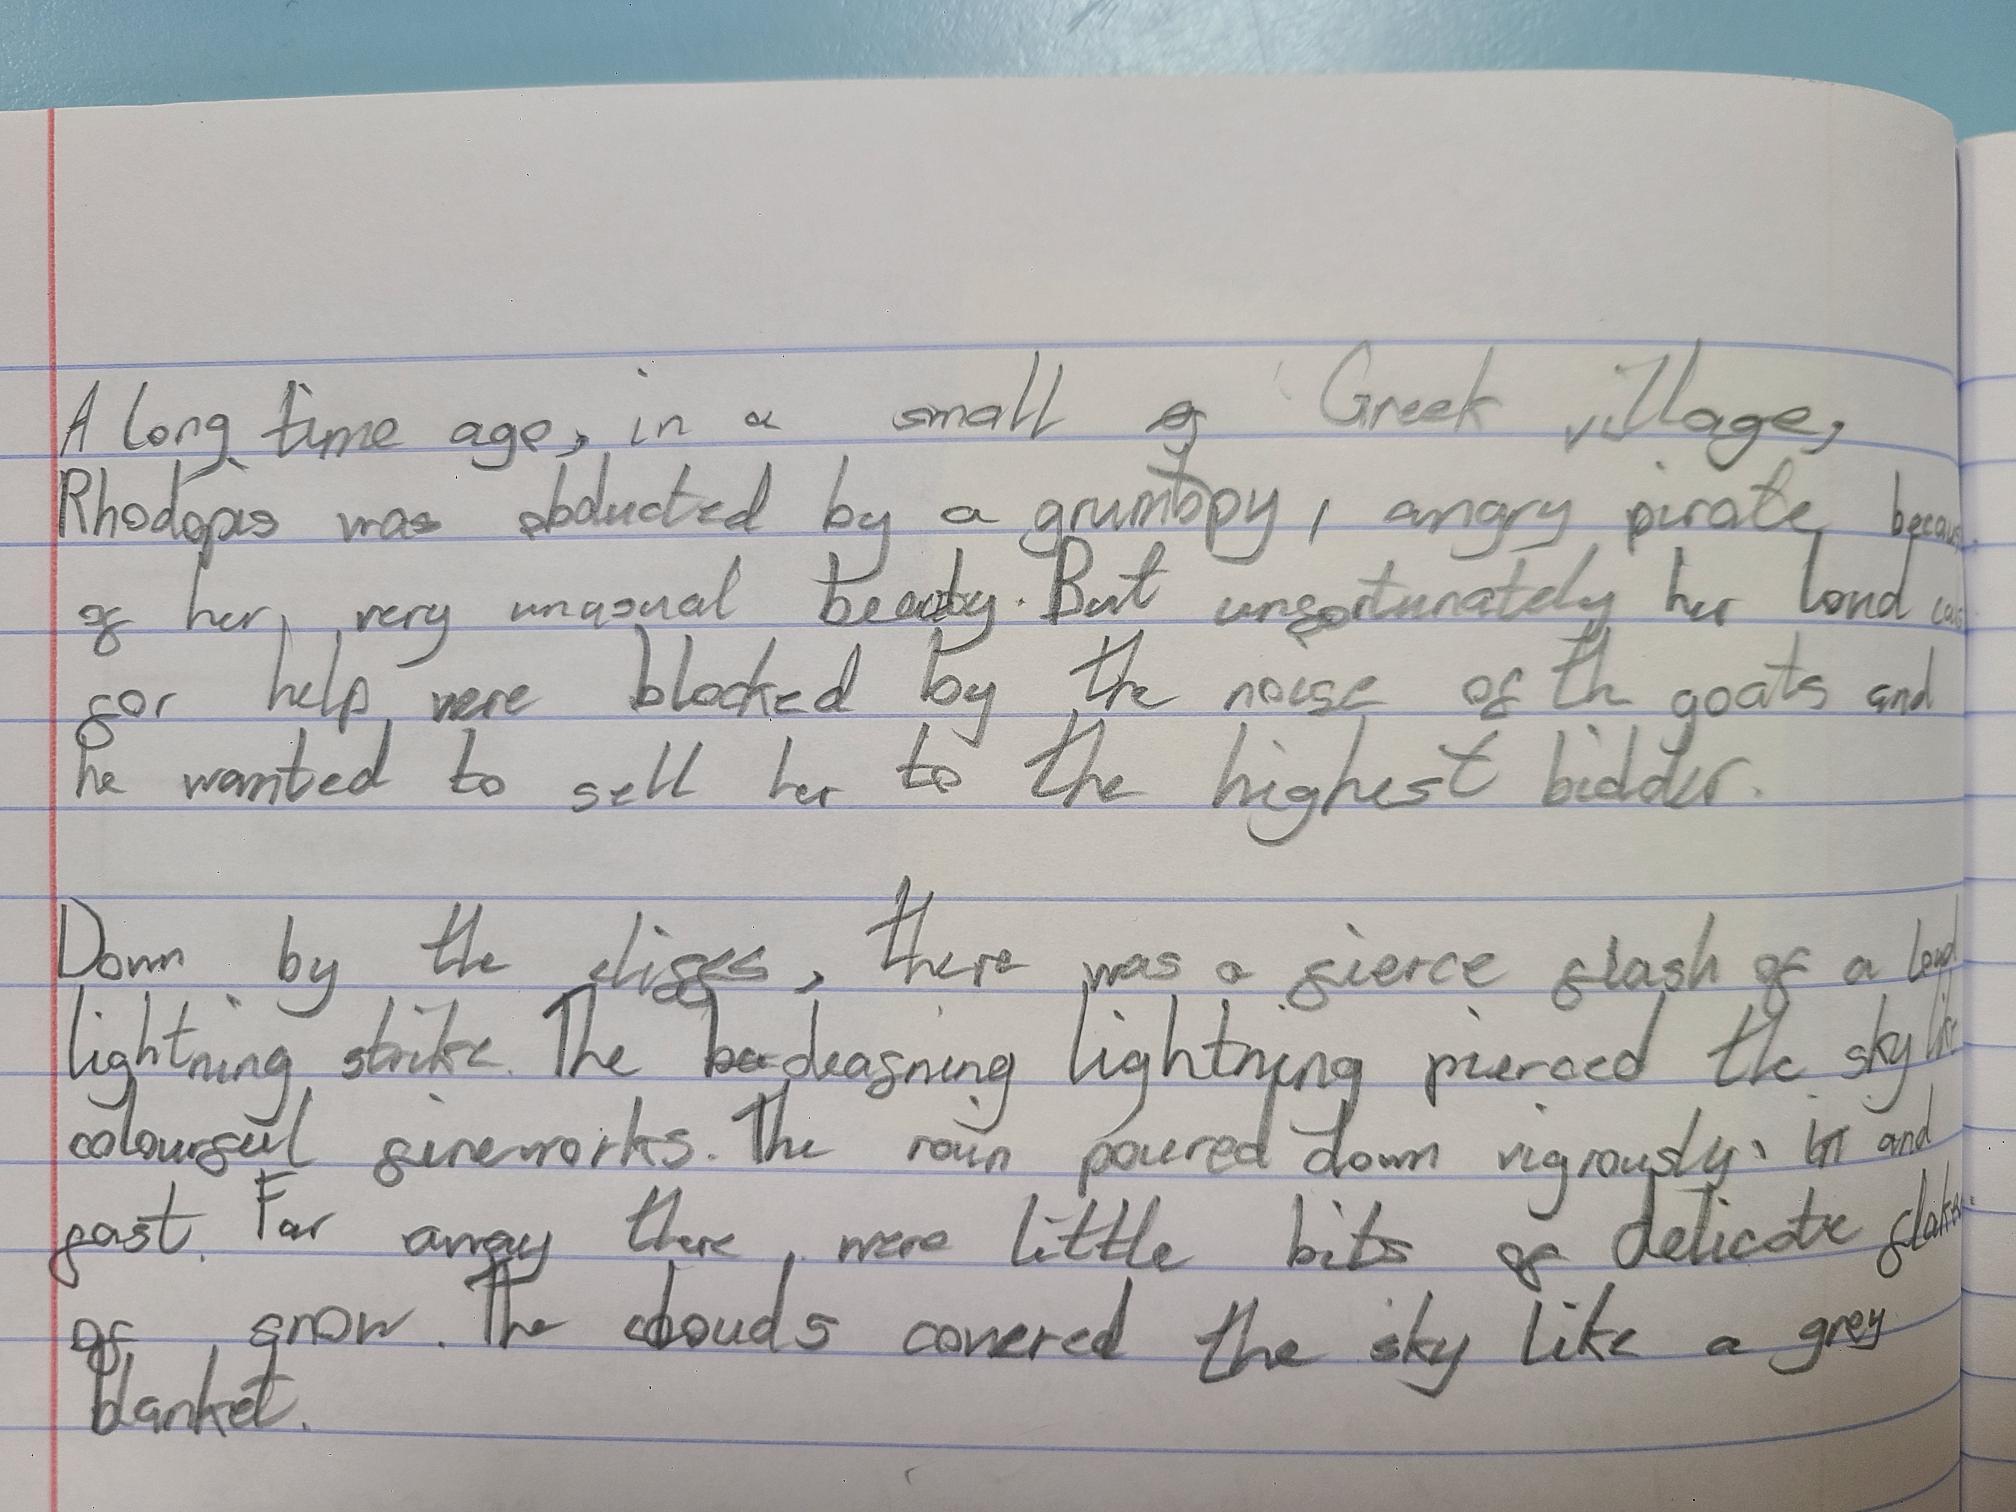 A long time age, in a small Greek village,
Rhodopis was abducted by a grumpy, angry pirate because
of her very unusual beauty. But unfortunately her loud
for help were blocked by the noise of th goats and
he wanted to sell her to the highest bidder.
Down by the cliffs, there was a fierce flash of a loud
lightning strike. The deafning lightning pierced the sky like
colourful fireworks. The rain poured down vigrously, and
fast. Far away there were little bits of delicate flakes
of snow. The clouds covered the sky like a grey
blanket.